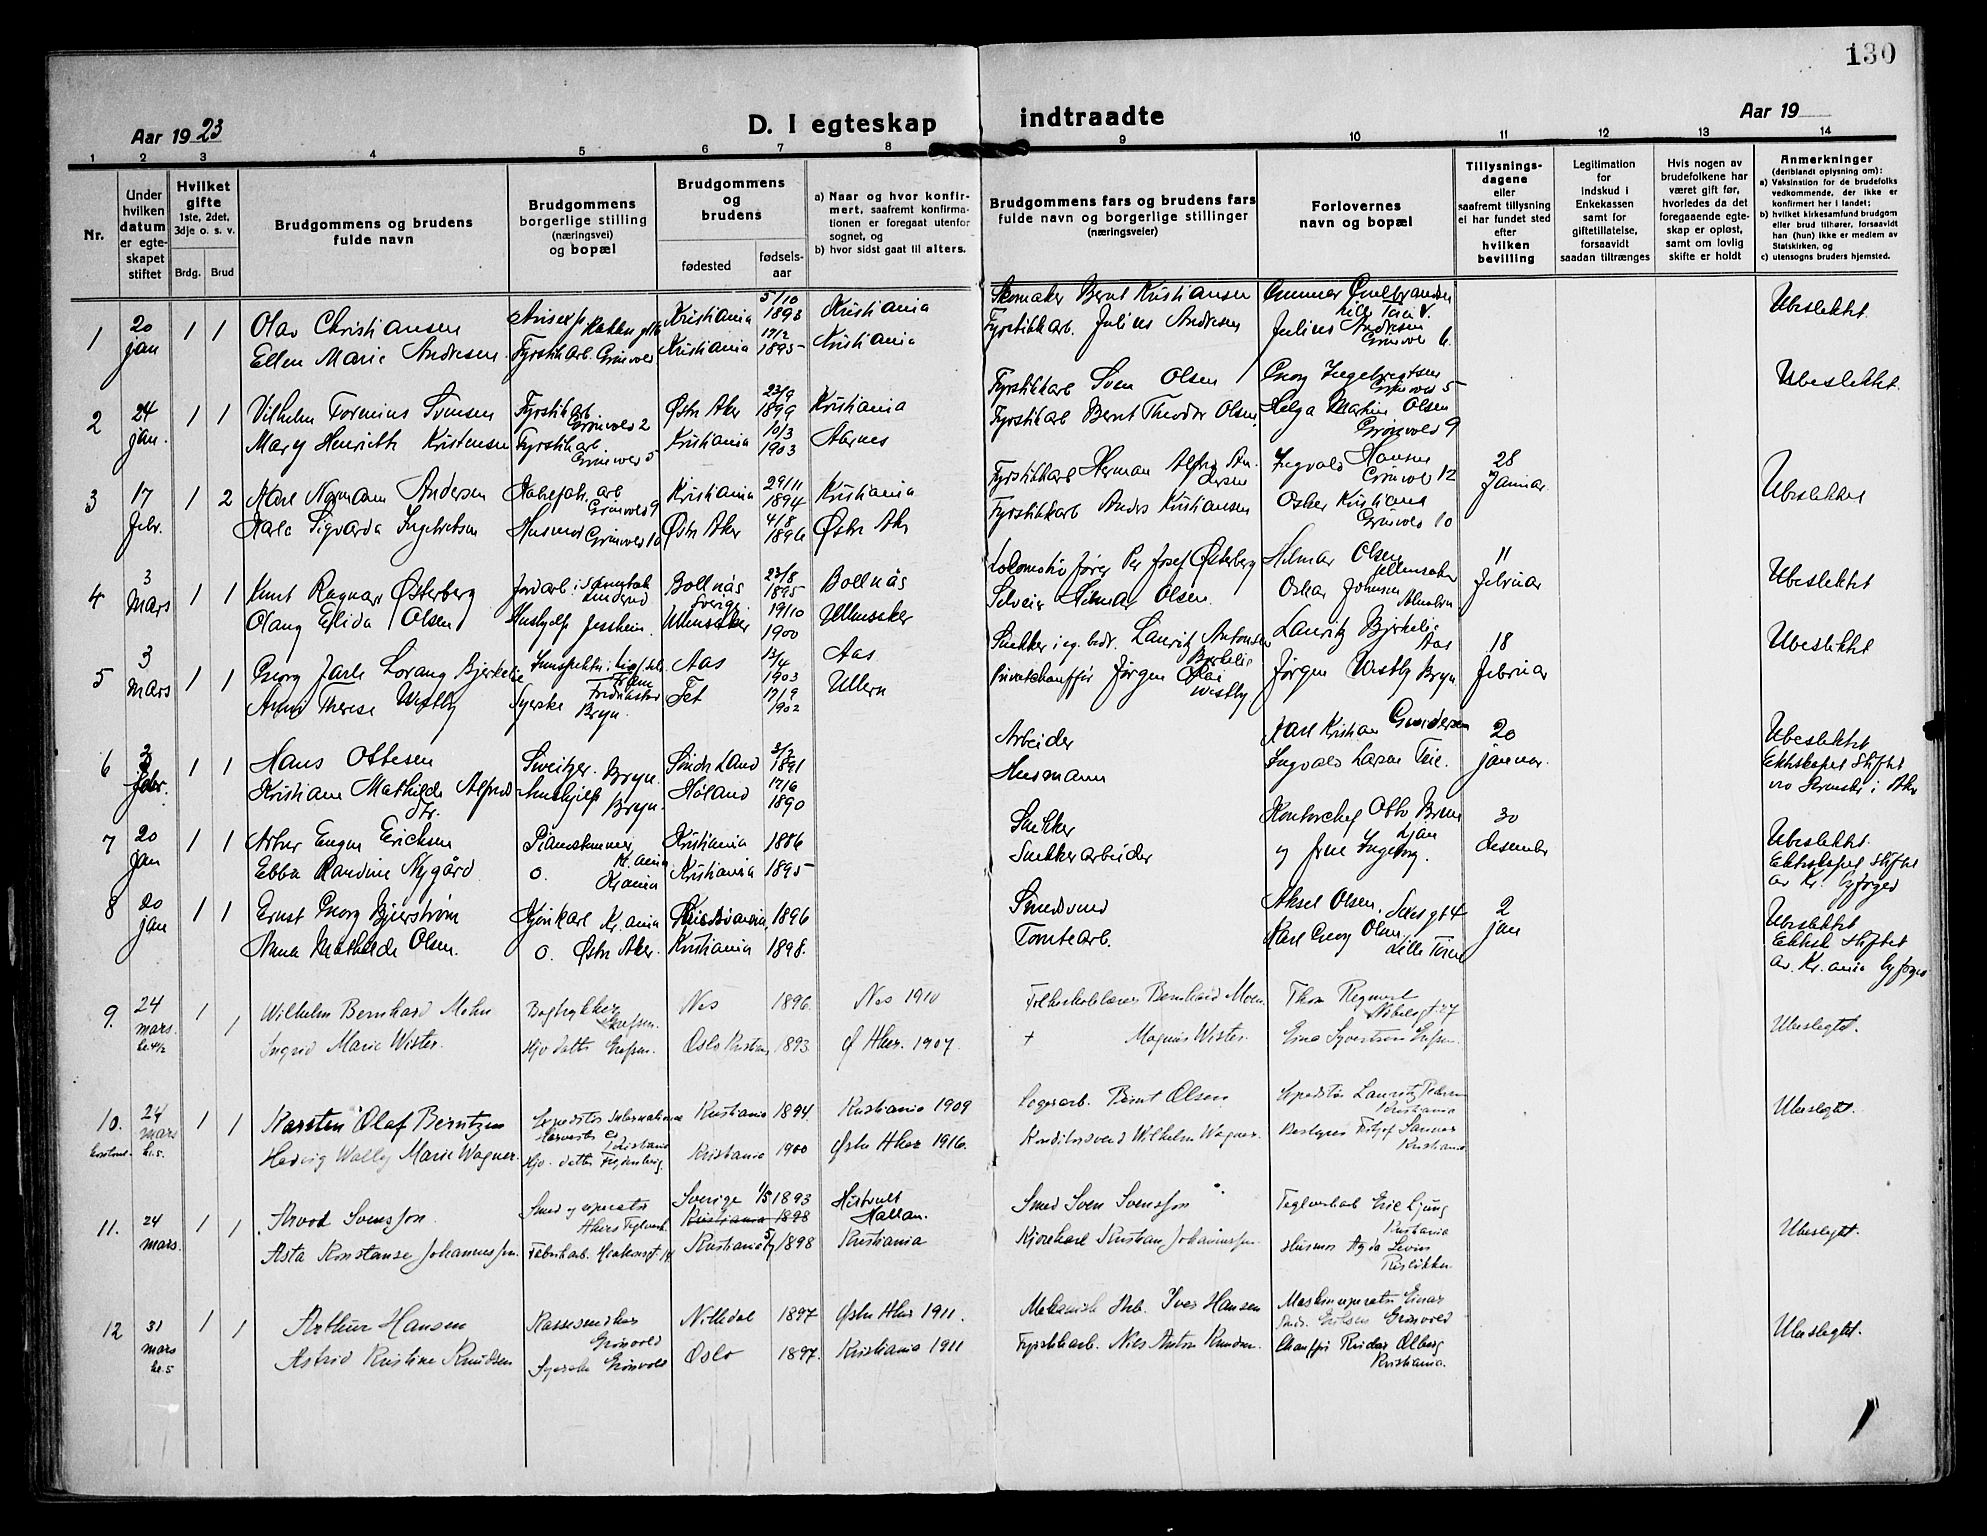 130
Aar 1923
D. I egteskap indtraadte
Aar 19
1 2 3 4 5 6 7 8 9 10 11 12 13 14
Nr.
Under hvilken datum er egte-skapet stiftet
Hvilket gifte 1ste, 2det, 3dje o. s. v.
Brdg. Brud
Brudgommens og brudens fulde navn
Brudgommens borgerlige stilling (næringsvei) og bopæl
Brudgommens og brudens
fødested fødsels-aar
a) Naar og hvor konfir-mert, saafremt konfirma-tionen er foregaat utenfor sognet, og
b) hvor sidst gaat til alters.
Brudgommens fars og brudens fars fulde navn og borgerlige stillinger (næringsveier)
Forlovernes navn og bopæl
Tillysnings-dagene eller saafremt tillysning ei har fundet sted efter hvilken bevilling
Legitimation for indskud i Enkekassen samt for giftetillatelse, forsaavidt saadan tiltrænges
Hvis nogen av brudefolkene har været gift før, hvorledes da det foregaaende egte-skap er opløst, samt om lovlig skifte er holdt
Anmerkninger (deriblandt oplysning om):
a) Vaksinstion for de brudefolks vedkommende, der ikke er konfirmert her i landet;
b) hvilket kirkesamfund brudgom eller brud tilhører, forsaavidt han (hun) ikke er medlem av Statskirken, og
c) utensogns bruders hjemsted.
1 20 jan 1 1 Olav Christiansen Kristiania 5/10 1898 Kristiania Skomaker Bernt Kristiansen Gunnar Ubeslektet.
Ellen Marie Andresen Fyrstikarb. Grønvold Kristiania 17/2 1895 Kristiania Fyrstikkarb. Julius Andresen Julius Andresen Grønvold 6.
2 24 jan. 1 1 Vilhelm Torenius Svensen Fyrstikarb Grønvold 2 Østr Aker 23/9 1899 Kristiania Fyrstikkarb Sven Olsen Georg Ingebregtsen Grønvold 5 Ubeslektet.
Mary Henrieth Kristensen Fyrstikarb Grønvold 5 Kristiania 10/3 1903 Aarnes Fyrstikarb Bernt Theodor Olsen. Helga Martine Olsen Grønvold 9
3 17 febr. 1 2 Karl Normann Andersen Grønvold 9 Kristiania 29/11 1894 Kristiania Fyrstikkarb Herman Alfred An-dersen Ingvald Hansen Grønvold 12 28 Januar Ubeslektet
Karla Sigvarda Ingebretsen Husmod Grønvold 10 Østr Aker 4/8 1896 Østr Aker Fyrstikkarb Anders Kristiansen Oskar Kristiansen Grønvold 10
4 3 mars 1 1 Knut Ragnar Østerberg Bollnäs Sverige 23/8 1895 Bollnäs Lokomotivfører Per Josef Østerberg Hilmar Olsen Ullensaker 11 februar Ubeslektet
Olaug Elida Olsen Hushjelp Jessheim. Ullensaker 19/10 1900 Ullensaker Selveier Hilmar Olsen. Oskar Johnsen
5 3 mars 1 1 Georg Jarle Lorang Bjerkelie Aas 13/4 1903 Aas Snekker i eg. bedr. Lauritz Antonsen Bjerkelie Lauritz Bjerkelie Aas 18 februar Ubeslektet
Anna Therese Westby Syerske Bryn. Fet 17/9 1902 Ullern Privatchauffør Jørgen Olai Westby Jørgen Westby Bryn
6 2 febr. 1 1 Hans Ottesen Sveitzer. Bryn. Søndr Land 3/2 1891 Arbeider Karl Kristian Gundersen 20 januar. Ubeslektet Ekteskapet stiftet
Kristiane Mathilde Alfredsdtr. Hushjelp Bryn. Høland 17/6 1890 Husmann Ingvald Larsen Teie.
7 20 jan 1 1 Artur Eugen Erichsen Pianostemmer Kr.ania Kristiania 1886 Snekker Kontorchef Otto Ljan 30 desember Ubeslektet. Ekteskapet stiftet av Kr. byfoged
Ebba Randine Nygård. o. Kr.ania Kristiania 1895 Snekkerarbeider og frue Ingeborg.
8 20 jan 1 1 Ernst Georg Bjerstrøm Kjørekarl Kr.ania 1896 Smedsvend Aksel Olsen. 2 jan Ubeslektet Ektsk stiftet av. Kr.ania byfoged
Anna Mathilde Olsen. o. Østr Aker. Kristiania 1898. Tomtearb. Karl Georg Olsen Lille Tøien
9. 24 mars. kl.4½ 1 1 Wilhelm Bernhard Mohn Bogtrykker Grefsen. Nes 1896. Nes 1910 Folkeskolelærer Bernhard Moen. Thom Regnvert Ubeslegtet.
Ingrid Marie Wister. Hjv. datter Grefsen. Oslo Kristiania 1893. Ø Aker. 1907. + Magnus Wister. Einar Syvertsen Grefsen.
10. 24 mars kl.5. 1 1 Karsten Olaf Berntzen Expeditør Internationale Harvester Co Kristiania Kristiania 1894. Kristiania 1909 Lagerarb. Bernt Olsen Expeditør Lauritz Pedersen Kristiania Ubeslegtet.
Hedvig Wally Marie Wagner. Hjv. datter Kristiania 1900 Østre Aker 1916. Konditorsvend Wilhelm Wagner. Bestyrer Kristiania
11. 24 mars. 1 1 Arvod Svensson. Smed og reparatør Akers Teglverk Sverige 1/5 1893 Hallan. Smed Sven Svensson Teglverkarb Eric Ljung Kristiania Ubeslegtet.
Kristiania 1898
Asta Konstanse Johannessen Fabrikarb. Kristiania 1898 Kristiania Kjørekarl Kristian Johannessen. Husmor Agda Levin Risløkken
12 31 mars kl.5 1 1 Arthur Hansen Grønvold Nittedal 1897 Østre Aker 1911. Mekanisk Arb. Iver Hansen Maskinreparatør Einar Grønvold Ubeslegtet.
Astrid Kristine Knudsen Syerske Grønvold Oslo 1897. Kristiania 1911 Fyrstikkarb. Nils Anton Knudsen. Chauffør Reidar Ølberg Kristiania.